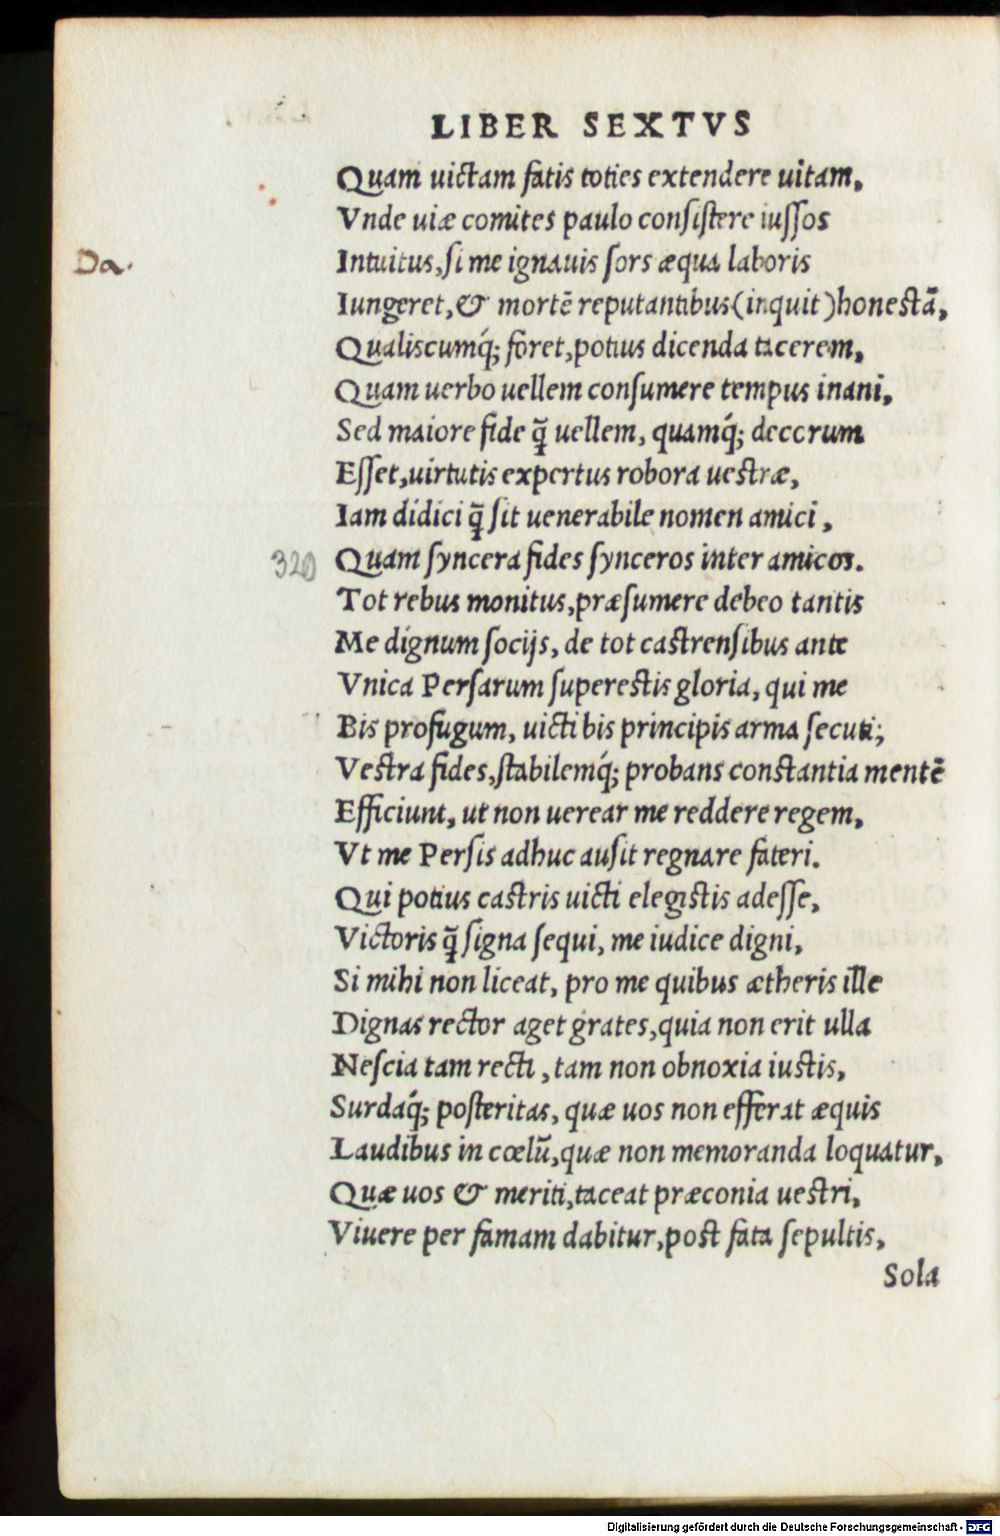 LIBER SEXTVS
Quam uictam fatis toties extendere uitam,
Vnde uiæ comites paulo consistere iussos
Da.
Intuitus, si me ignauis sors æqua laboris
Iungeret, & mortē reputantibus (inquit) honestā,
Qualiscumq́; foret, potius dicenda tacerem,
Quam uerbo uellem consumere tempus inani,
Sed maiore fide q̄ uellem, quamq́; decorum
Esset, uirtutis expertus robora uestræ,
Iam didici q̄ sit uenerabile nomen amici,
320 Quam syncera fides synceros inter amicos.
Tot rebus monitus, præsumere debeo tantis
Me dignum socijs, de tot castrensibus ante
Vnica Persarum superestis gloria, qui me
Bis profugum, uicti bis principis arma secuti;
Vestra fides, stabilemq́; probans constantia mentē
Efficiunt, ut non uerear me reddere regem,
Vt me Persis adhuc ausit regnare fateri.
Qui potius castris uicti elegistis adesse,
Victoris q̄ signa sequi, me iudice digni,
Si mihi non liceat, pro me quibus ætheris ille
Dignas rector aget grates, quia non erit ulla
Nescia tam recti, tam non obnoxia iustis,
Surdaq́; posteritas, quæ uos non efferat æquis
Laudibus in cœlū, quæ non memoranda loquatur,
Quæ uos & meriti, taceat præconia uestri,
Viuere per famam dabitur, post fata sepultis,
Sola
Digitalisierung gefördert durch die Deutsche Forschungsgemeinschaft - DFG